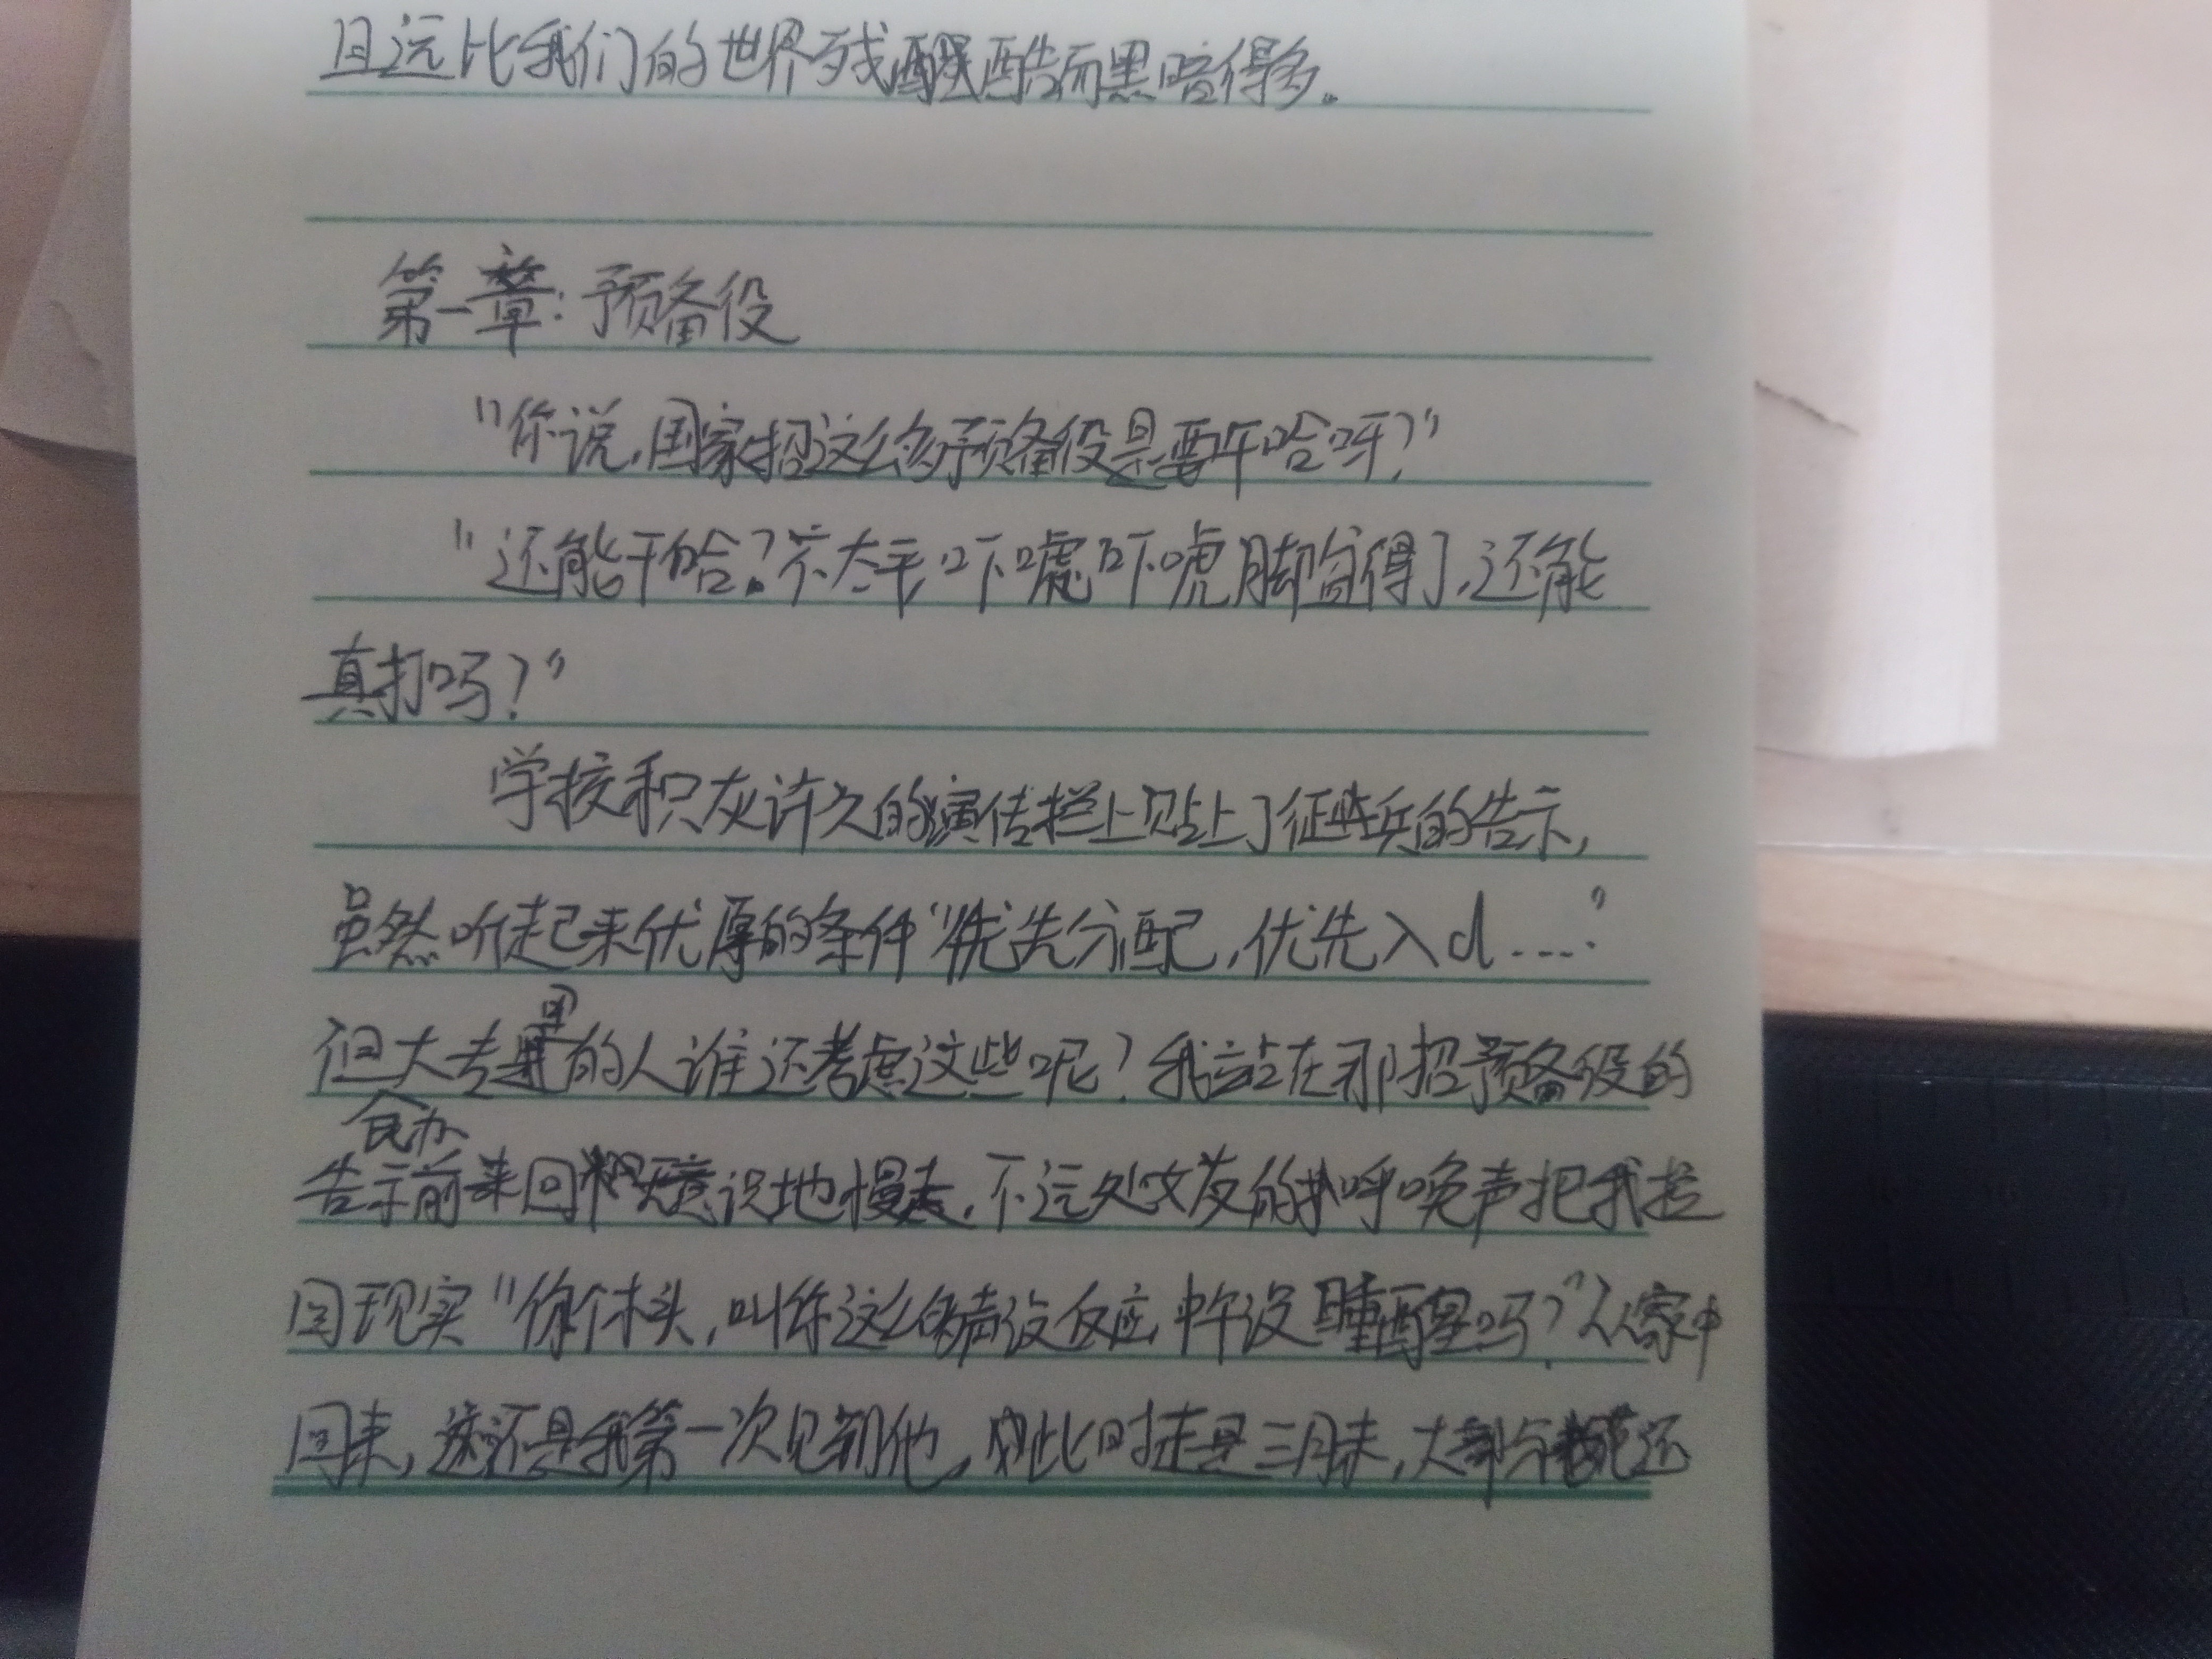 且远比我们的世界残酷而黑暗得多。
第一章：预备役
"你说，国家招这么多预备役是要干啥呀？"
"还能干啥？不太平，吓唬吓唬脚盆得了，还能
真打吗？"
学校积灰许久的宣传栏上贴上了征兵的告示，
虽然听起来优厚的条件"优先分配，优先入d……"
但大专里的人谁还考虑这些呢？我站在那招预备役的
民办
告示前来回无意识地慢走，不远处女友的呼唤声把我拉
回现实"你个木头，叫你这么多声没反应，中午没睡醒吗？"从家中
回来，这还是我第一次见到他，此时走是三月末，大部分还